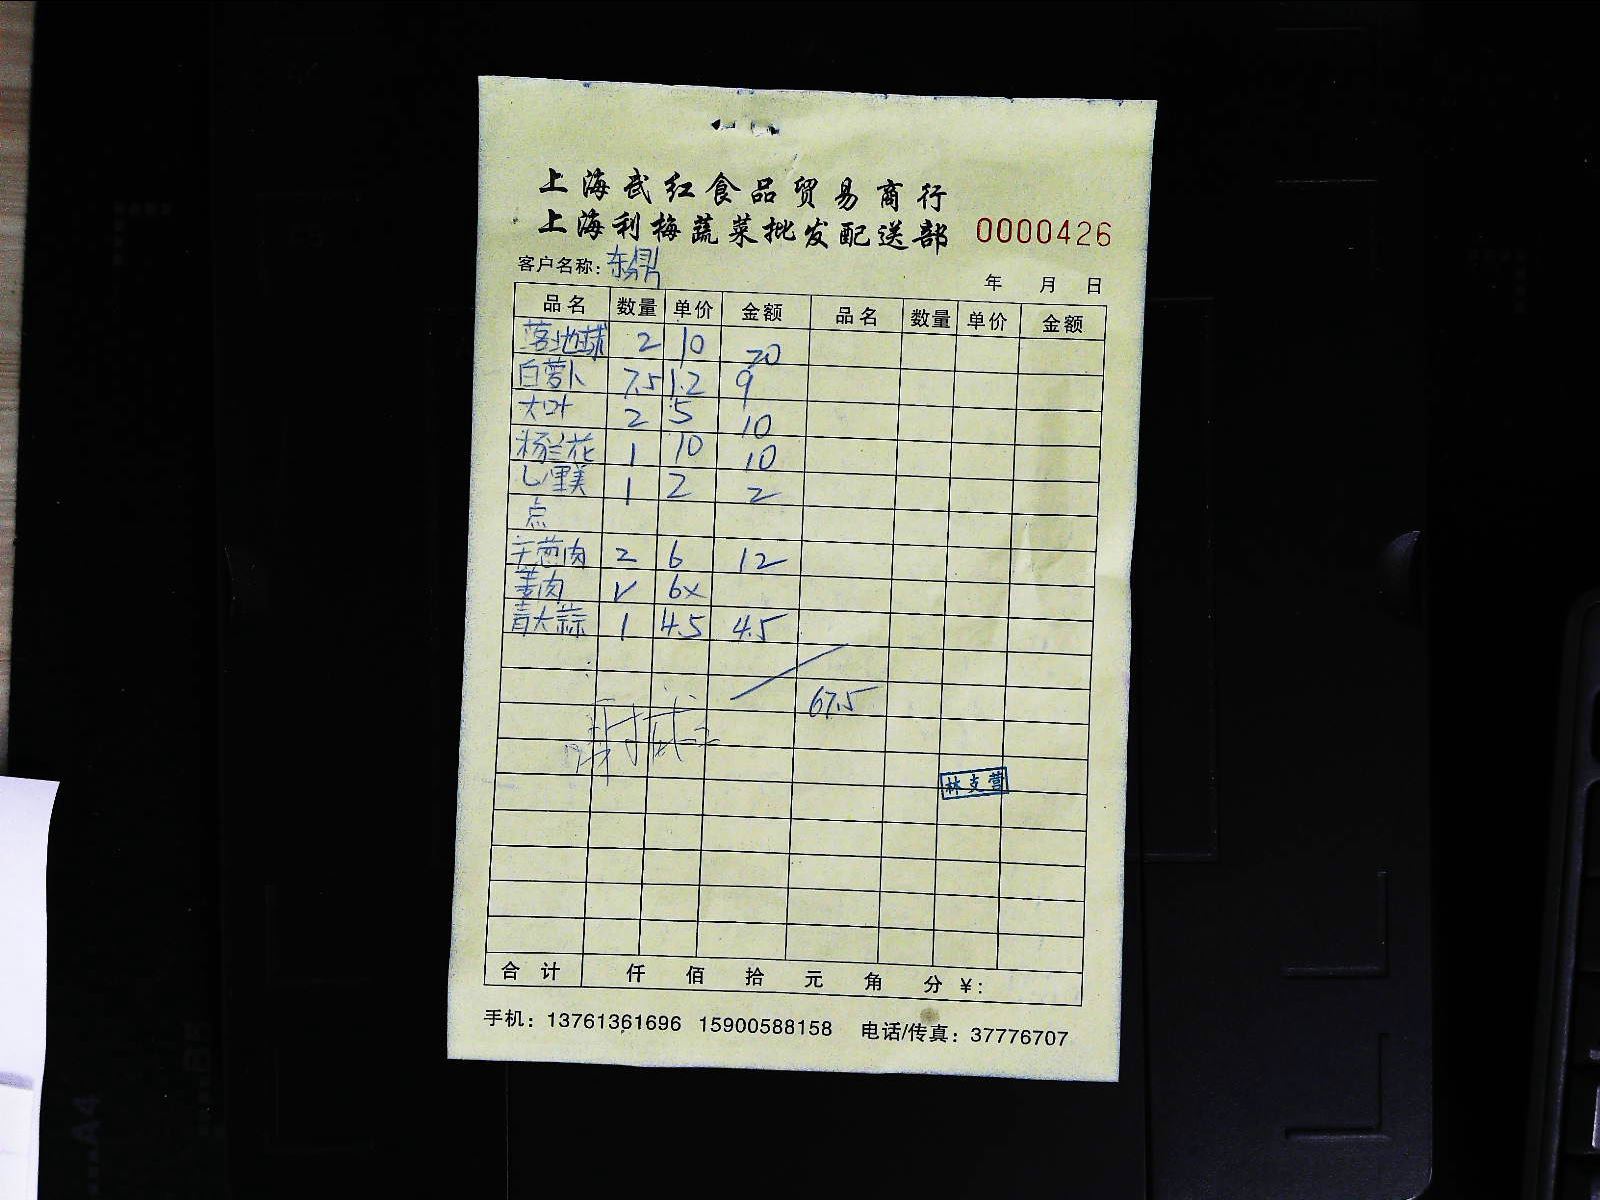 上海武红食品贸易商行
上海利梅蔬菜批发配送部 0000426
客户名称：东鼎
年 月 日
品名 数量 单价 金额 品名 数量 单价 金额
落地球 2 10 20
白萝卜 7.5 1.2 9
大叶 2 5 10
杨兰花 1 10 10
心里美 1 2 2
点
羊葱肉 2 6 12
姜肉 6x
青大蒜 1 4.5 4.5
67.5
林支营
合计 仟 佰 拾 元 角 分 ¥:
手机：13761361696 15900588158 电话/传真：37776707
A4